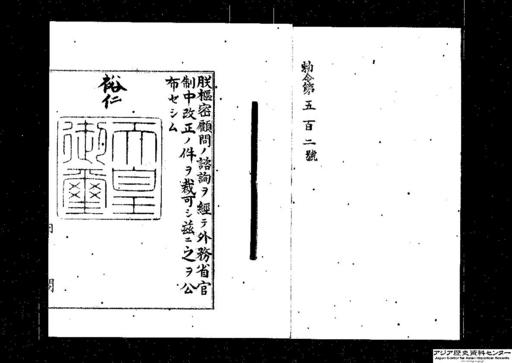 勅令第五百二號
朕樞密顧問ノ諮詢ヲ經テ外務省官
制中改正ノ件ヲ裁可シ茲ニ之ヲ公
布セシム
裕仁
天皇
御璽
アジア歴史資料センター
Japan Center for Asian Historical Records